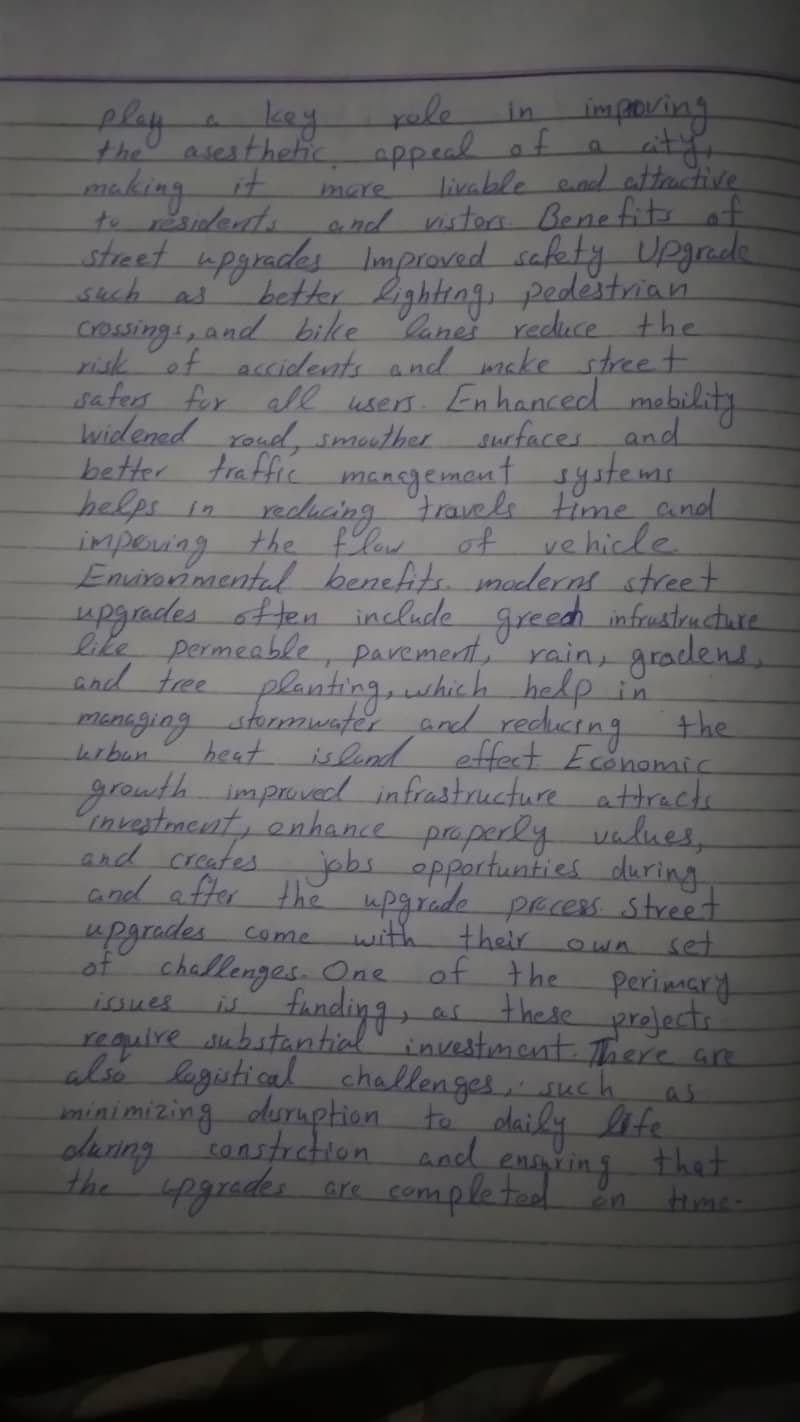 play a key role in improving
the asesthetic appeal of a city,
making it more livable and attractive
to residents and vistors. Benefits of
street upgrades Improved safety Upgrade
such as better lighting, pedestrian
crossings, and bike lanes reduce the
risk of accidents and make street
safers for all users. Enhanced mobility
widened road, smoother surfaces and
better traffic management systems
helps in reducing travels time and
impoving the flow of vehicle.
Environmental benefits. moderns street
upgrades often include green infrustructure
like permeable, pavement, rain, gradens,
and tree planting, which help in
managing stormwater and reducing the
urban heat island effect Economic
growth improved infrastructure attracts
investment, enhance properly values,
and creates jobs opportunties during
and after the upgrade process. street
upgrades come with their own set
of challenges. One of the perimary
issues is funding, as these projects
require substantial investment. There are
also logistical challenges, such as
minimizing disruption to daily life
during constrction and ensuring that
the upgrades are completed on time.